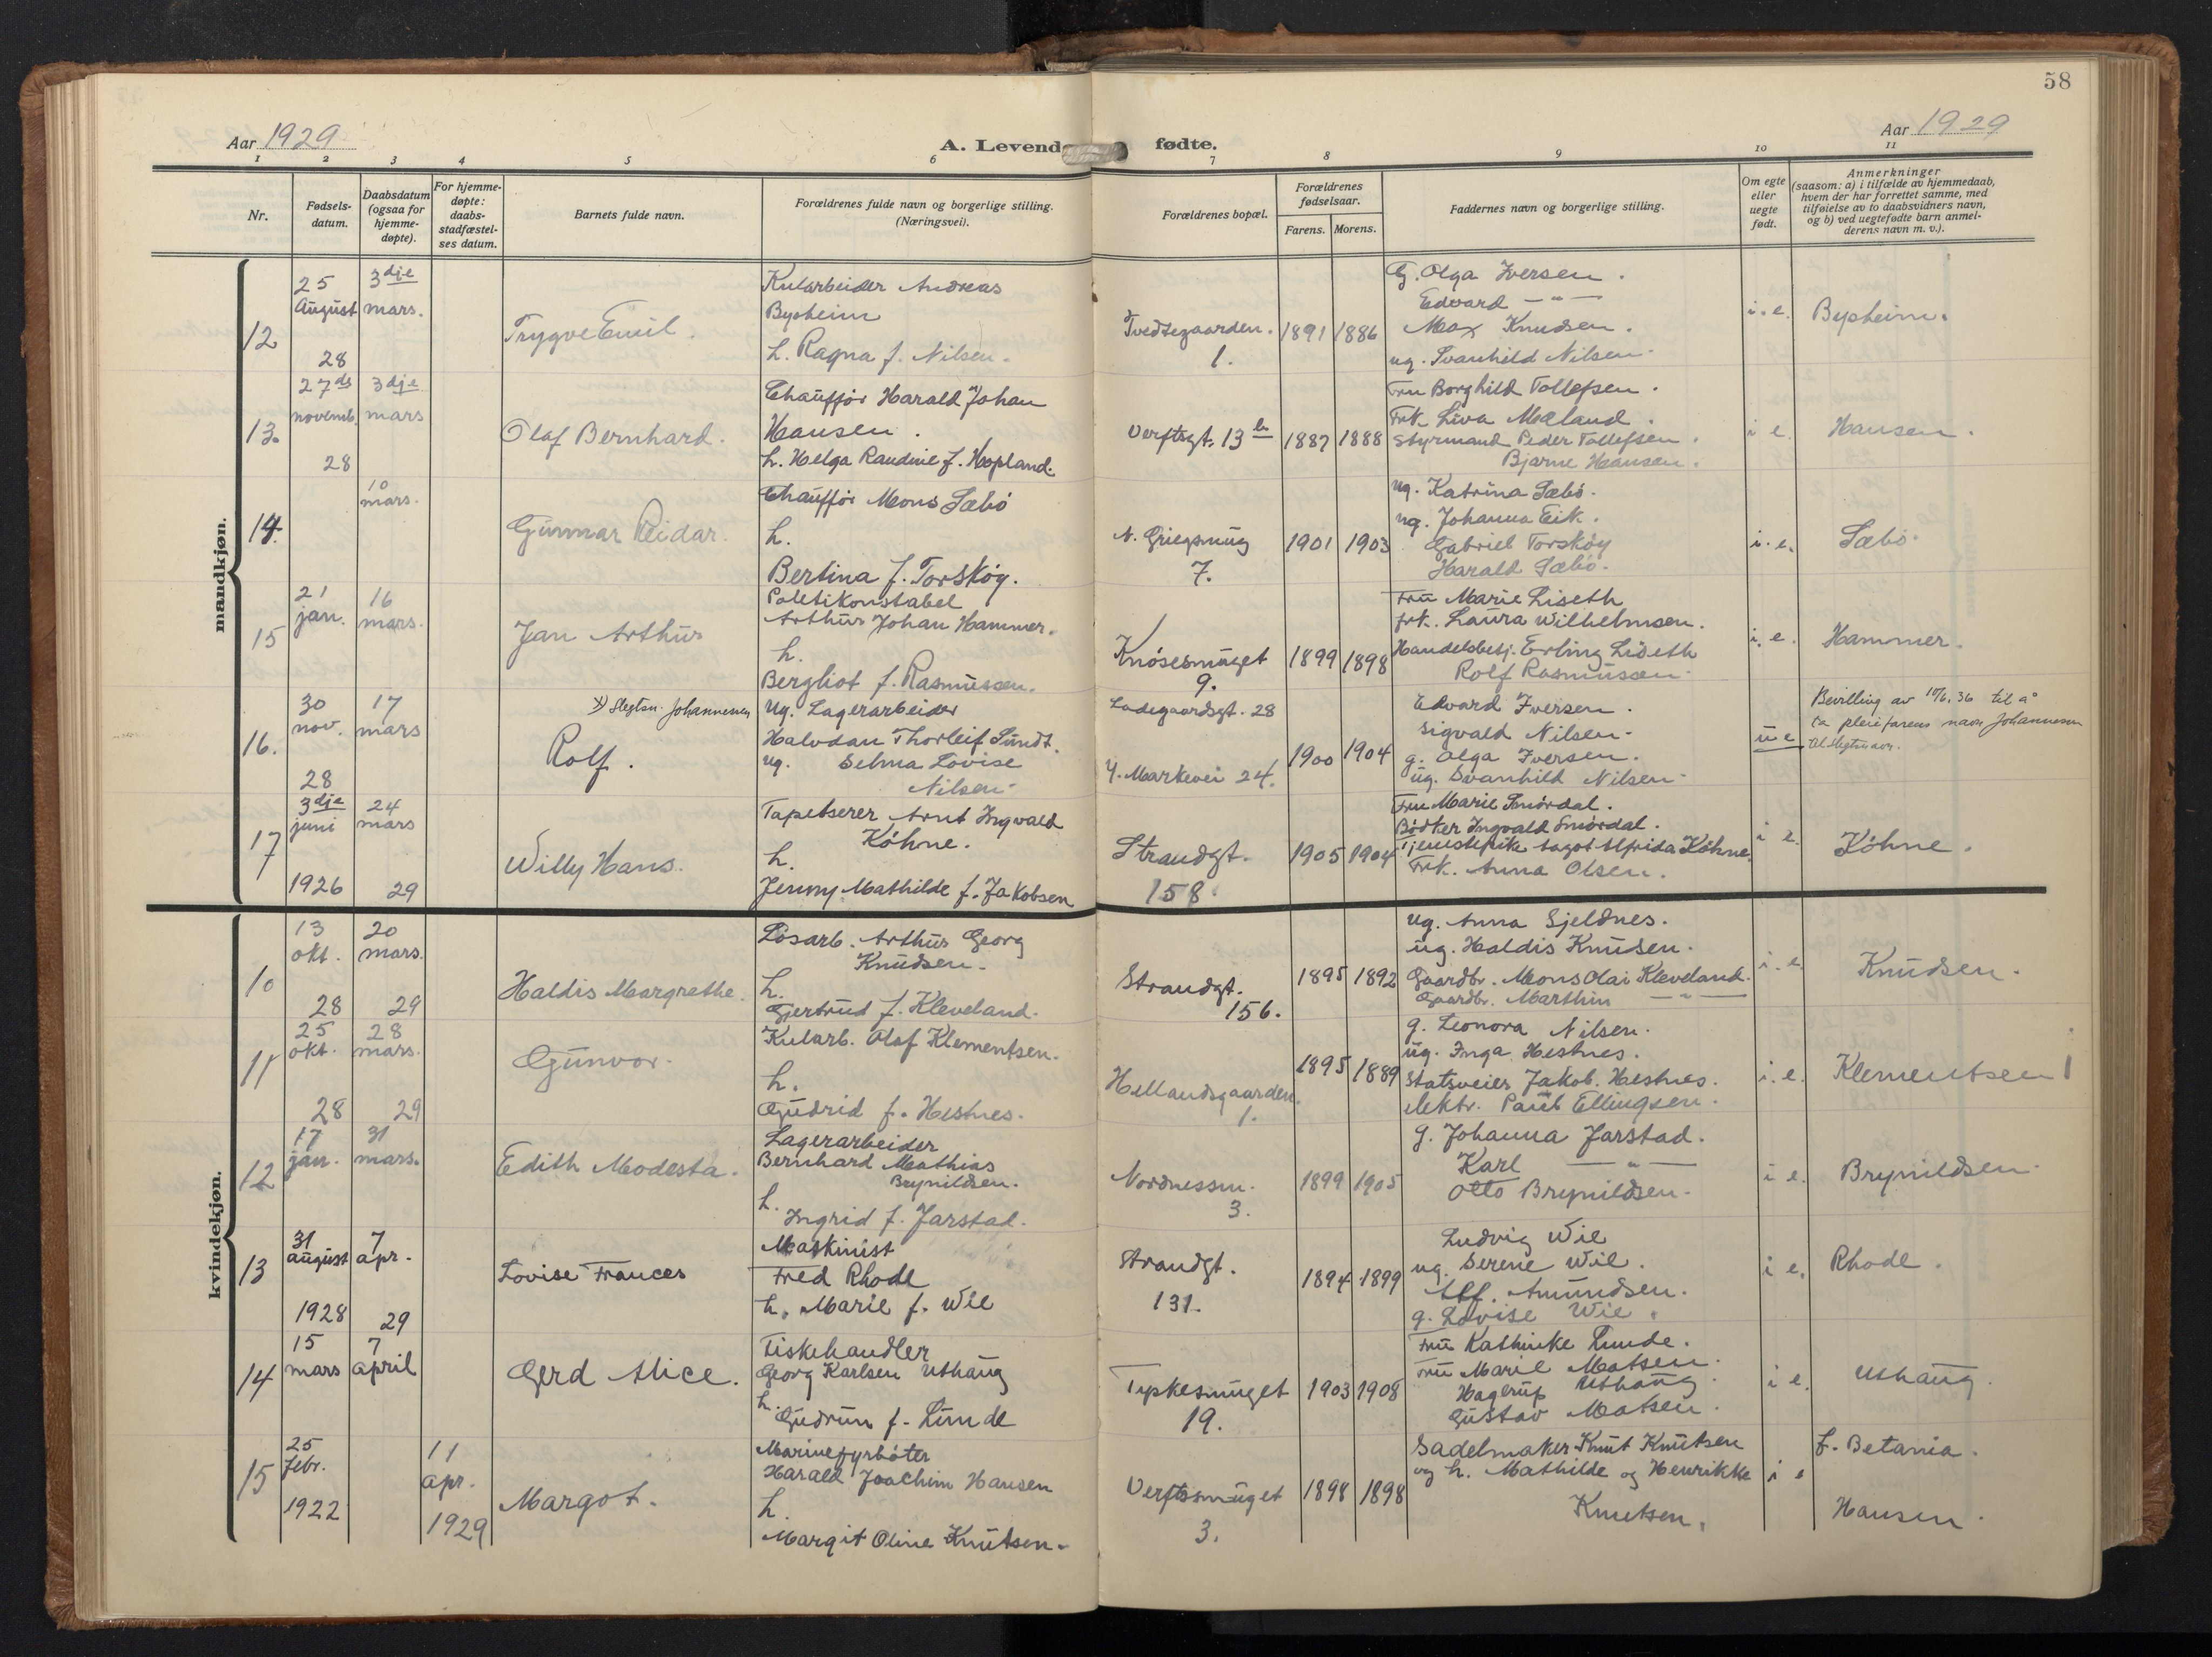 58
Aar 1929
A. Levende fødte.
Aar 1929
1 2 3 4 5 6 7 8 9 10 11
Nr.
Fødsels-
datum.
Daabsdatum
(ogsaa for
hjemme-
døpte).
For hjemme-
døpte:
daabs-
stadfæstel-
ses datum.
Barnets fulde navn.
Forældrenes fulde navn og borgerlige stilling.
(Næringsvei).
Forældrenes bopæl.
Forældrenes
fødselsaar.
Farens. Morens.
Faddernes navn og borgerlige stilling.
Om egte
eller
uegte
født.
Anmerkninger
(saasom: a) i tilfælde av hjemmedaab,
hvem der har forrettet samme, med
tilføielse av to daabsvidners navn,
og b) ved uegtefødte barn anmel-
derens navn m. v.).
mandkjøn.
12
25
August
28
3dje
mars.
Trygve Emil.
Kularbeider Andreas
Bysheim
h. Ragna f. Nilsen.
Tvedtegaarden.
1.
1891 1886
G. Olga Iversen.
Edvard — " —
Max Knudsen.
ug. Svanhild Nilsen.
i. e.
Bysheim.
13.
27de
novemb.
28
3dje
mars
Olaf Bernhard.
Chauffør Harald Johan
Hansen.
h. Helga Raudine f. Hopland.
Verftsgt. 13
1887 1888
Fru Borghild Tollefsen.
Frk. Liva Mæland.
Styrmand Peder Tollefsen.
Bjarne Hansen.
i e.
Hansen.
14.
10
mars.
Gunnar Reidar.
Chauffør Mons Sæbø
h.
Bertina f. Torskøy.
N. Griegsmug
7.
1901 1903
ug. Katrina Sæbø.
ug. Johanna Eik.
Gabriel Torskøy
Harald Sæbø.
i. e.
Sæbø.
15
21
jan.
16
mars.
Jan Arthur
Politikonstabel
Arthur Johan Hammer.
h.
Bergliot f. Rasmussen.
Knøsesmuget
9.
1899 1898
Fru Marie Liseth
frk. Laura Wilhelmsen.
Handelsbetj. Erling Liseth
Rolf Rasmussen.
i. e.
Hammer.
16.
30
nov.
28
17
mars
x) Slegtsn. Johannessen
Rolf.
Ug. Lagerarbeider
Halvdan Thorleif Sundt.
ug. Selma Lovise
Nilsen.
Ladegaardsgt. 28
Y. Markevei 24.
1900 1904
Edvard Iversen.
Sigvald Nilsen.
g. Olga Iversen.
ug. Svanhild Nilsen.
u e
Bevilling av 10/6. 36 til å
ta pleiefarens navn Johannessen
til slegtsnavn.
17
3dje
juni
1926
24
mars
29
Willy Hans.
Tapetserer Arnt Ingvald
Köhne.
h.
Jenny Mathilde f. Jakobsen
Strandgt.
158.
1905 1904
Fru Marie Smørdal.
Bødker Ingvald Smørdal.
Tjenestepike Alfrida Köhne.
Frk. Anna Olsen.
i e.
Köhne.
kvindekjøn.
10
13
okt.
28
20
mars.
29
Haldis Margrethe.
Løsarb. Arthur Georg
Knudsen.
h.
Gjertrud f. Kleveland.
Strandgt.
156.
1895 1892
ug. Anna Sjeldnes.
ug. Haldis Knudsen.
Gaardbr. Mons Olai Kleveland.
Gaardbr. Marthin — " —
i. e.
Knudsen.
11
25
okt.
28
28
mars.
29
Gunvor.
Kularb. Olaf Klementsen.
h.
Gudrid f. Hestnes.
Hellandsgaarden.
1.
1895 1889
g. Leonora Nilsen.
ug. Inga Hestnes.
Statsveier Jakob Hestnes.
elektr. Paul Ellingsen.
i. e.
Klementsen
12
17
jan.
31
mars.
Edith Modesta.
Lagerarbeider
Bernhard Mathias
Brynildsen.
h.
Ingrid f. Jarstad.
Nordnessm.
3.
1899 1905
g. Johanna Jarstad.
Karl — " —
Otto Brynildsen.
i e.
Brynildsen.
13
31
august
1928
7
apr.
29
Lovise Frances
Maskinist
Fred Rhode
h. Marie f. Wie
Strandgt.
131.
1894 1899
Ludvig Wie
ug. Serene Wie.
Alf. Amundsen.
g. Lovise Wie.
i e.
Rhode.
14
15
mars
7
april
Gerd Alice.
Fiskehandler
Georg Karlsen Uthaug
h.
Gudrun f. Lunde
Typkesmuget
19.
1903 1908
Fru Kathinke Lunde.
Fru Marie Matsen.
Hagerup Uthaug.
Gustav Matsen.
i e.
Uthaug.
15
25
febr.
1922
11
apr.
1929
Margot.
Marinefyrbøter
Harald Joachim Hansen
h.
Margit Oline Knutsen.
Verftssmuget
3.
1898 1898
Sadelmaker Knut Knutsen
og h. Mathilde og Henrikke
Knutsen.
i e
f. Betania.
Hansen.